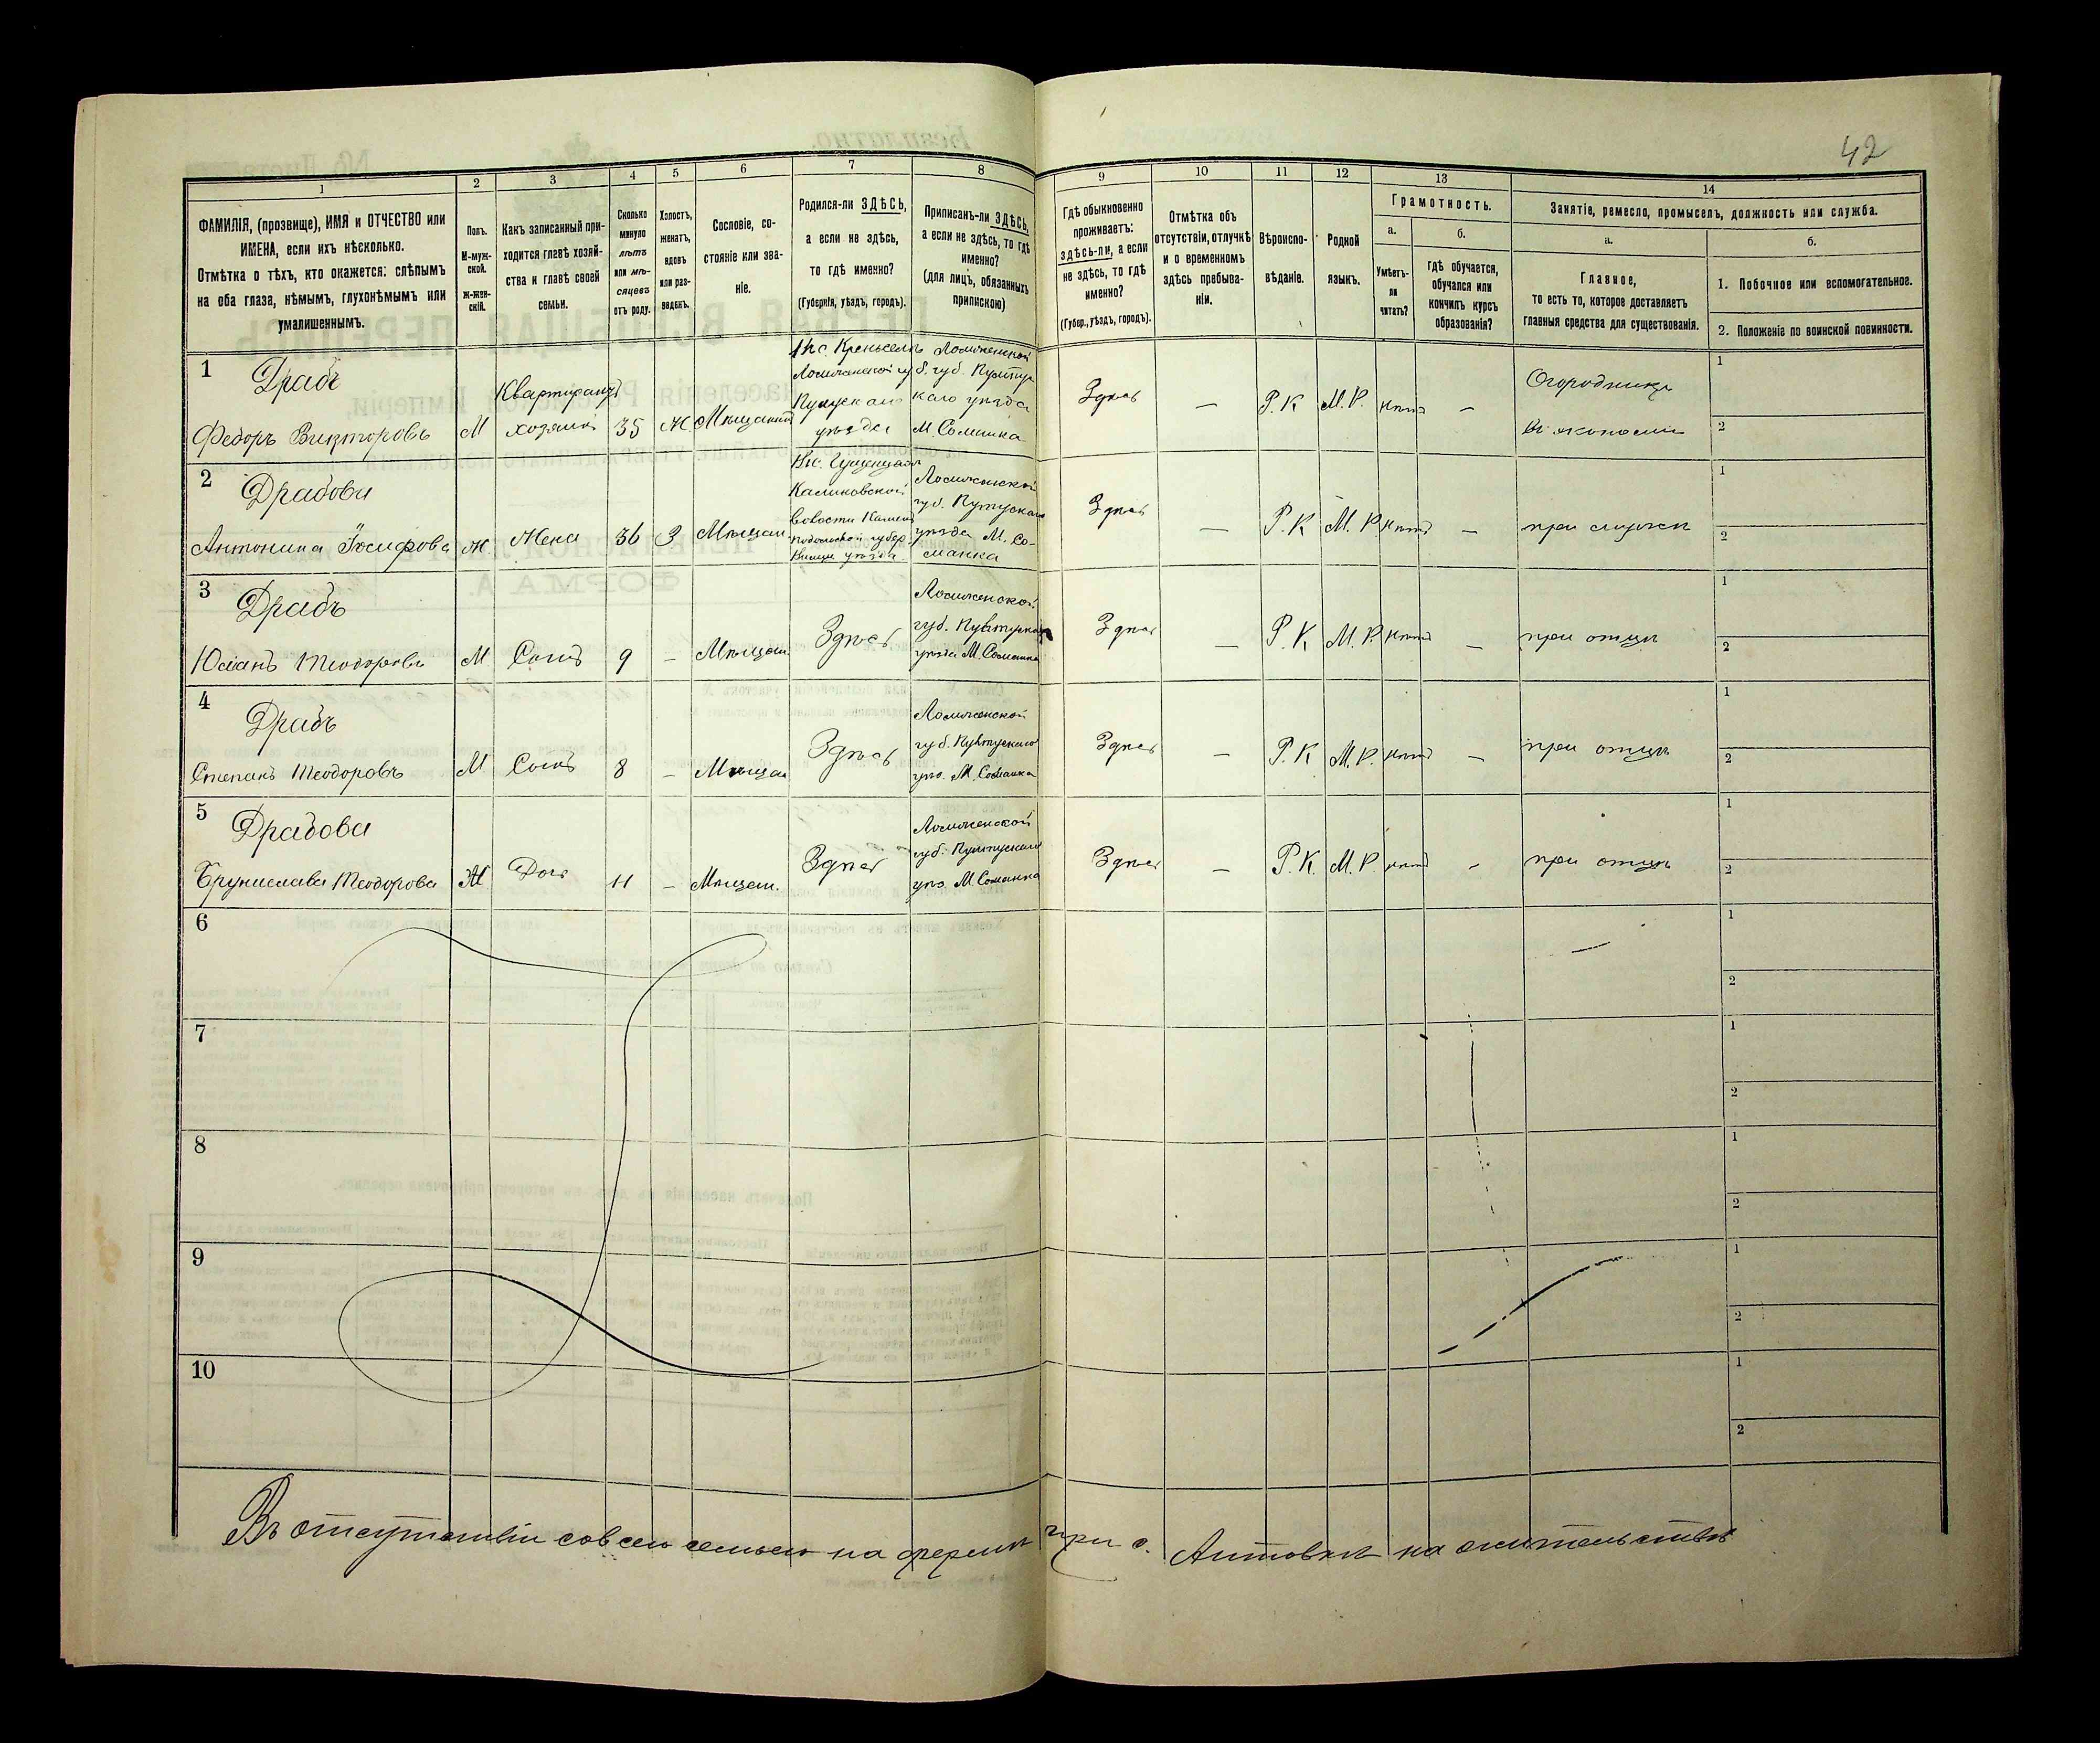 42
1
2
3
4
5
6
7
8
9
10
11
12
13
14
ФАМИЛІЯ, (прозвище), ИМЯ и ОТЧЕСТВО или
ИМЕНА, если ихъ нѣсколько.
Отмѣтка о тѣхъ, кто окажется: слѣпымъ
на оба глаза, нѣмымъ, глухонѣмымъ или
умалишеннымъ.
Полъ.
М-муж-
ской.
Ж-жен-
скій.
Какъ записанный при-
ходится главѣ хозяй-
ства и главѣ своей
семьи.
Сколько
минуло
лѣтъ
или мѣ-
сяцевъ
отъ роду.
Холостъ,
женатъ,
вдовъ
или раз-
веденъ.
Сословіе, со-
стояніе или зва-
ніе.
Родился-ли ЗДѢСЬ,
а если не здѣсь,
то гдѣ именно?
(Губернія, уѣздъ, городъ).
Приписанъ-ли ЗДѢСЬ,
а если не здѣсь, то гдѣ
именно?
(для лицъ, обязанныхъ
припискою)
Гдѣ обыкновенно
проживаетъ:
здѣсь-ли, а если
не здѣсь, то гдѣ
именно?
(Губер., уѣздъ, городъ).
Отмѣтка объ
отсутствіи, отлучкѣ
и о временномъ
здѣсь пребыва-
ніи.
Вѣроиспо-
вѣданіе.
Родной
языкъ.
Грамотность.
а.
Умѣетъ-
ли
читать?
б.
гдѣ обучается,
обучался или
кончилъ курсъ
образованія?
Занятіе, ремесло, промыселъ, должность или служба.
а.
Главное,
то есть то, которое доставляетъ
главныя средства для существованія.
б.
1. Побочное или вспомогательное.
2. Положеніе по воинской повинности.
1
Драбъ
Федоръ Викторовъ
М
Квартирантъ
хозяинъ
35
Ж.
Мѣщанинъ
Ломженской
уѣзда
каго уѣзда
М. Соманка
Здѣсь
—
Р. К
М. Р.
нѣтъ
—
Огородникъ
въ экономіи
1
2
2
Драбова
Антонина Іосифова
Ж.
Жена
36
З
Мѣщан.
Ломженской
уѣзда М. Со-
манка
Здѣсь
—
Р. К
М. Р
нѣтъ
—
при мужѣ
1
2
3
Драбъ
Теодоровъ
М
Сынъ
9
—
Мѣщан.
Здѣсь
Ломженской
губ. Пултускаго
уѣзда М. Соманка
Здѣсь
—
Р. К
М. Р.
нѣтъ
—
при отцѣ
1
2
4
Драбъ
Степанъ Теодоровъ
М
Сынъ
8
—
Мѣщан
Здѣсь
Ломженской
губ. Пултускаго
уѣз. М. Соманка
Здѣсь
—
Р. К
М. Р.
нѣтъ
—
при отцѣ
1
2
5
Драбова
Брунислава Теодорова
Ж
Дочь
11
—
Мѣщан.
Здѣсь
Ломженской
губ. Пултускаго
уѣз. М. Соманка
Здѣсь
—
Р. К.
М. Р.
нѣтъ
-
при отцѣ
1
2
6
1
2
7
1
2
8
1
2
9
1
2
10
1
2
Въ отсутствіи со всею семьею на фермѣ при с. Антовкѣ на жительствѣ